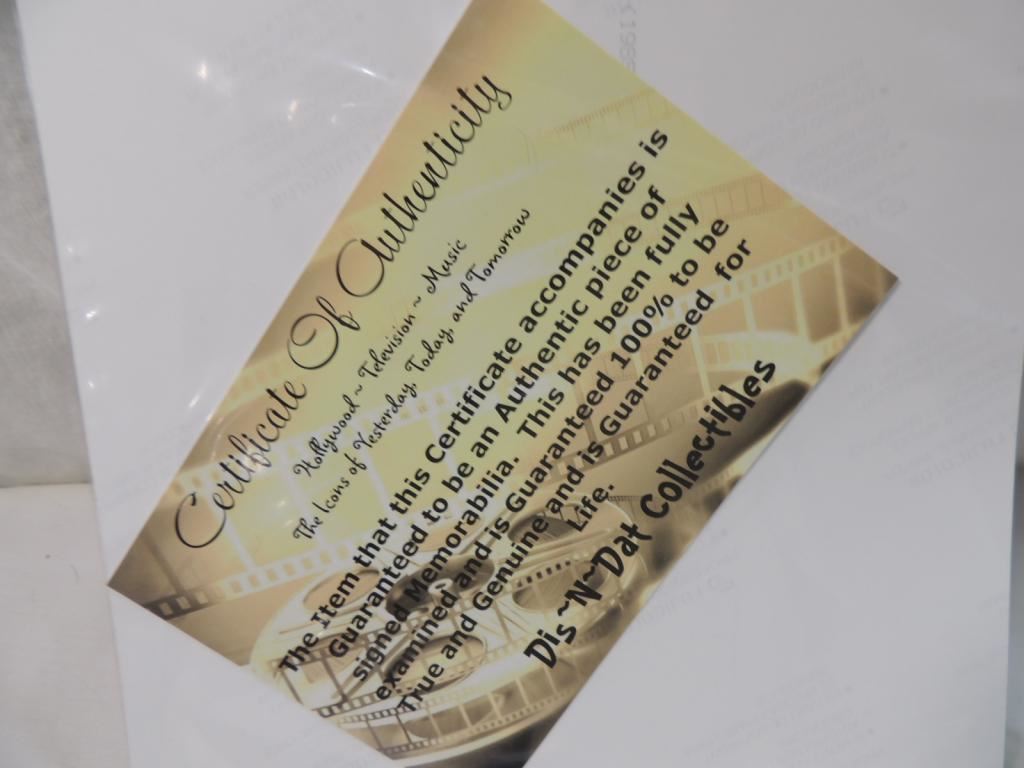 Certificate Of Authenticity
Hollywood ~ Television ~ Music
The Icons of Yesterday, Today, and Tomorrow
The Item that this Certificate accompanies is
Guaranteed to be an Authentic piece of
signed Memorabilia. This has been fully
examined and is Guaranteed 100% to be
True and Genuine and is Guaranteed for
Life.
Dis~N~Dat Collectibles